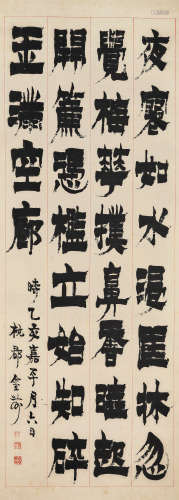 夜寒如水浸匡牀忽
覺梅華撲鼻香睡起
開簾憑檻立始知碎
玉滿空廊
時乙亥嘉平月六日
杭郡金